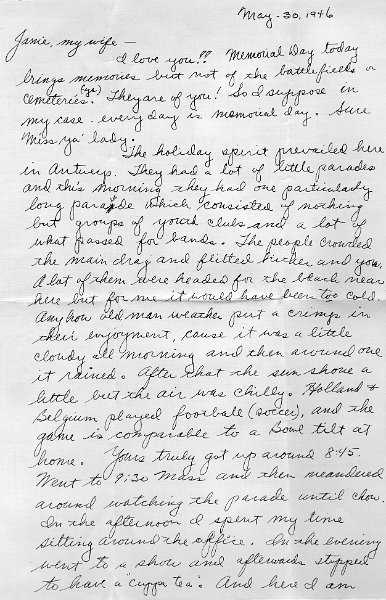 May-30, 1946
Janie, my wife —
I love you!! Memorial Day today
brings memories but not of the battlefields or
cemeteries. They are of you! So I suppose in
my case - every day is memorial day. Sure
'Miss 'ya' lady.
The holiday spirit prevailed here
in Antwerp. They had a lot of little parades
and this morning they had one particularly
long parade which consisted of nothing
but groups of youth clubs and a lot of
what passed for bands. The people crowded
the main drag and flitted hither and yon.
A lot of them were headed for the beach near
here but for me it would have been too cold.
Anyhow old man weather put a crimp in
their enjoyment, cause it was a little
cloudy all morning and then around one
it rained. After that the sun shone a
little but the air was chilly. Holland &
Belgium played football (soccer), and the
game is comparable to a Bowl tilt at
home. Yours truly got up around 8:45.
Went to 9:30 Mass and then meandered
around watching the parade until chow.
In the afternoon I spent my time
sitting around the office. In the evening
went to a show and afterwards stopped
to have a "cuppa tea". And here I am